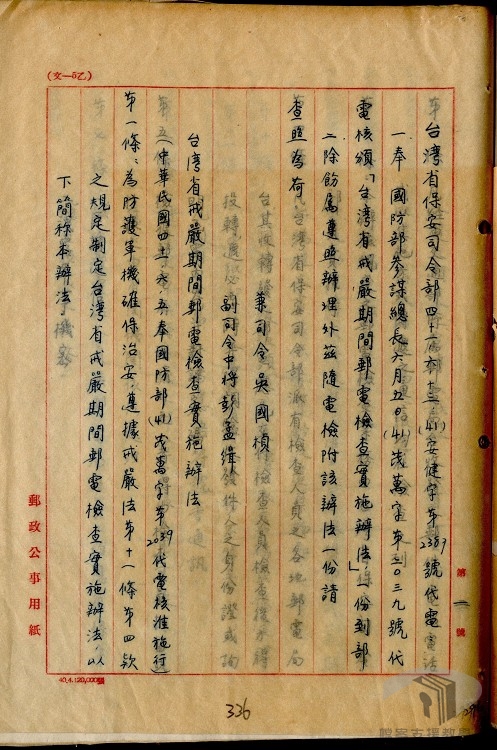 (文一5乙)
台湾省保安司令部四十一六十三(41)安健字第2387號代電
一奉 國防部參謀總長六月五日(41)茂萬字第二〇三九號代
電核頒「台湾省戒嚴期間郵電檢查實施辦法」一份到部
二除飭属遵照辦理外茲隨電檢附該辦法一份請
查照為荷
兼司令吳國楨
副司令中將彭孟緝
台湾省戒嚴期間郵電檢查實施辦法
(中華民國四十一、六、五奉國防部(41)茂萬字第2039代電核准施行)
第一條:為防護軍機確保治安,遵據戒嚴法第十一條第四款
之規定制定台湾省戒嚴期間郵電檢查實施辦法,以
下簡称本辦法
第 號
郵政公事用紙
40.4.120,000張
336